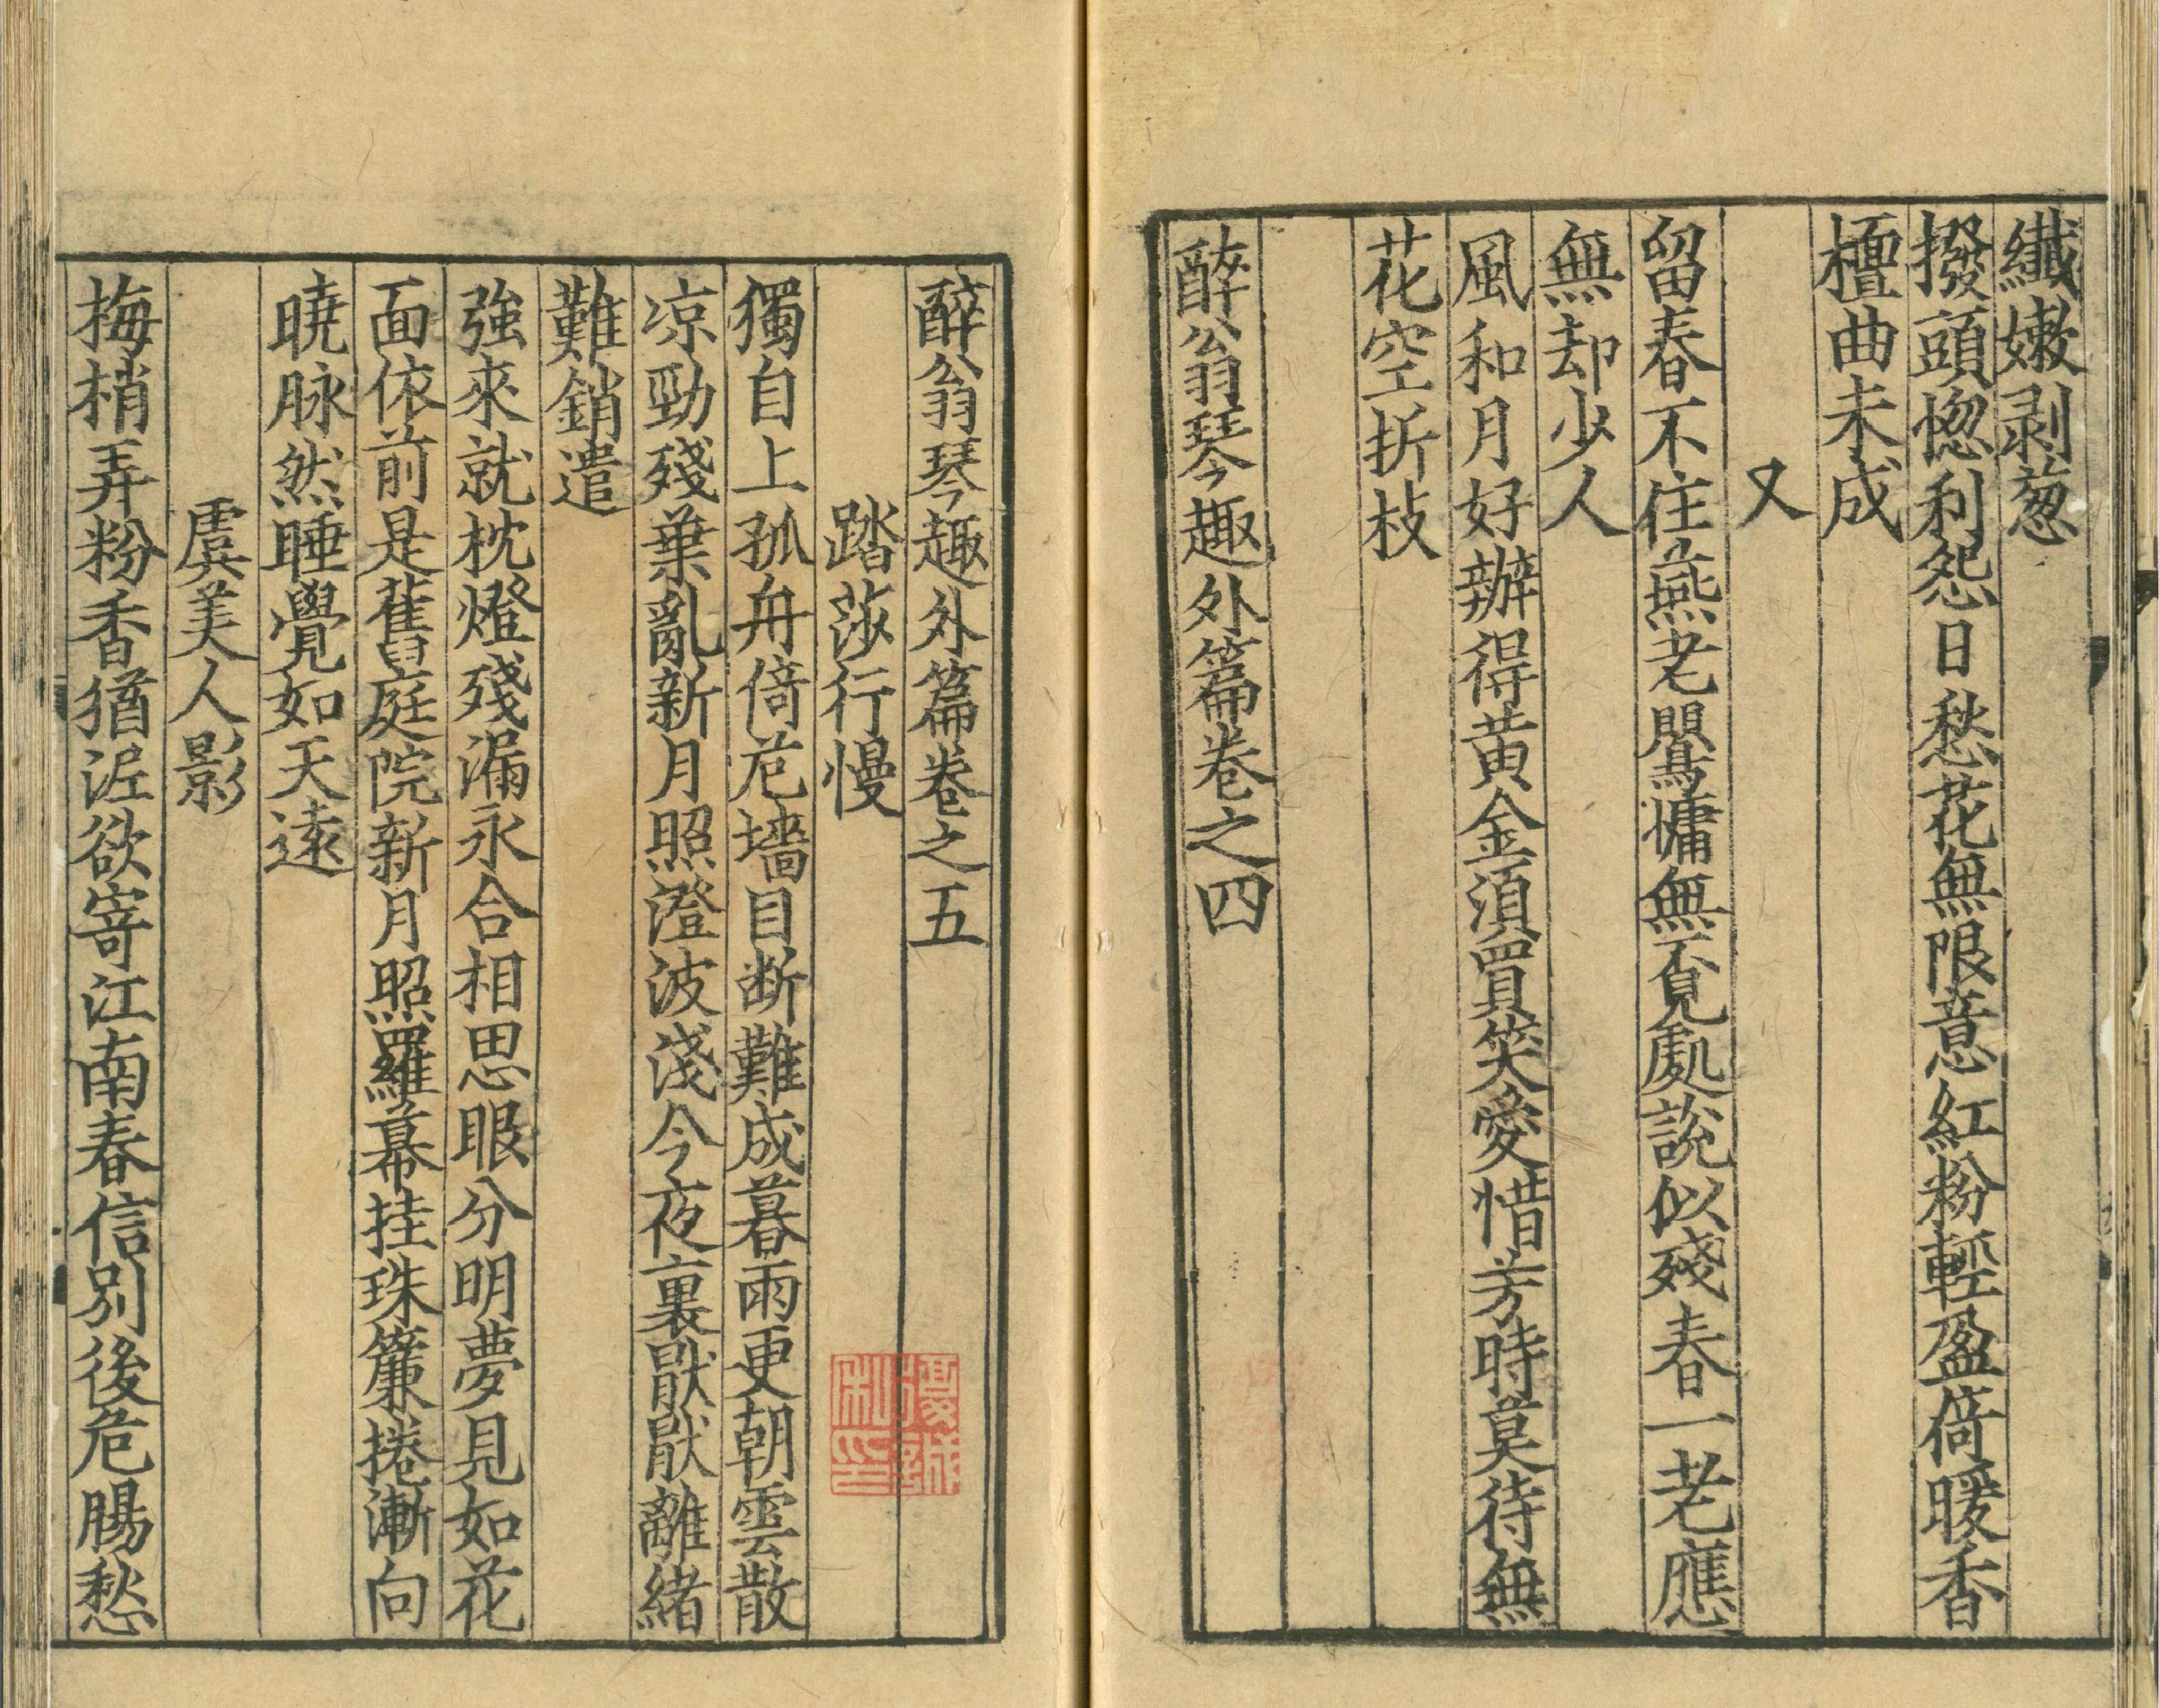 纖嫩剥葱
撥頭惚利怨日愁花無限意紅粉輕盈倚暖香
檀曲未成
又
留春不住燕老鸎慵無覔處說似殘春一老應
無却少人
風和月好辦得黄金須買笑愛惜芳時莫待無
花空折枝
醉翁琴趣外篇卷之四
醉翁琴趣外篇卷之五
踏莎行慢
獨自上孤舟倚危墻目断難成暮雨更朝雲散
凉勁殘葉亂新月照澄波淺今夜裏厭厭離緒
難銷遣
強來就枕燈殘漏永合相思眼分明夢見如花
面依前是舊庭院新月照羅幕挂珠簾捲漸向
曉脉然睡覺如天遠
虞美人影
梅梢弄粉香猶泥欲寄江南春信別後危腸愁